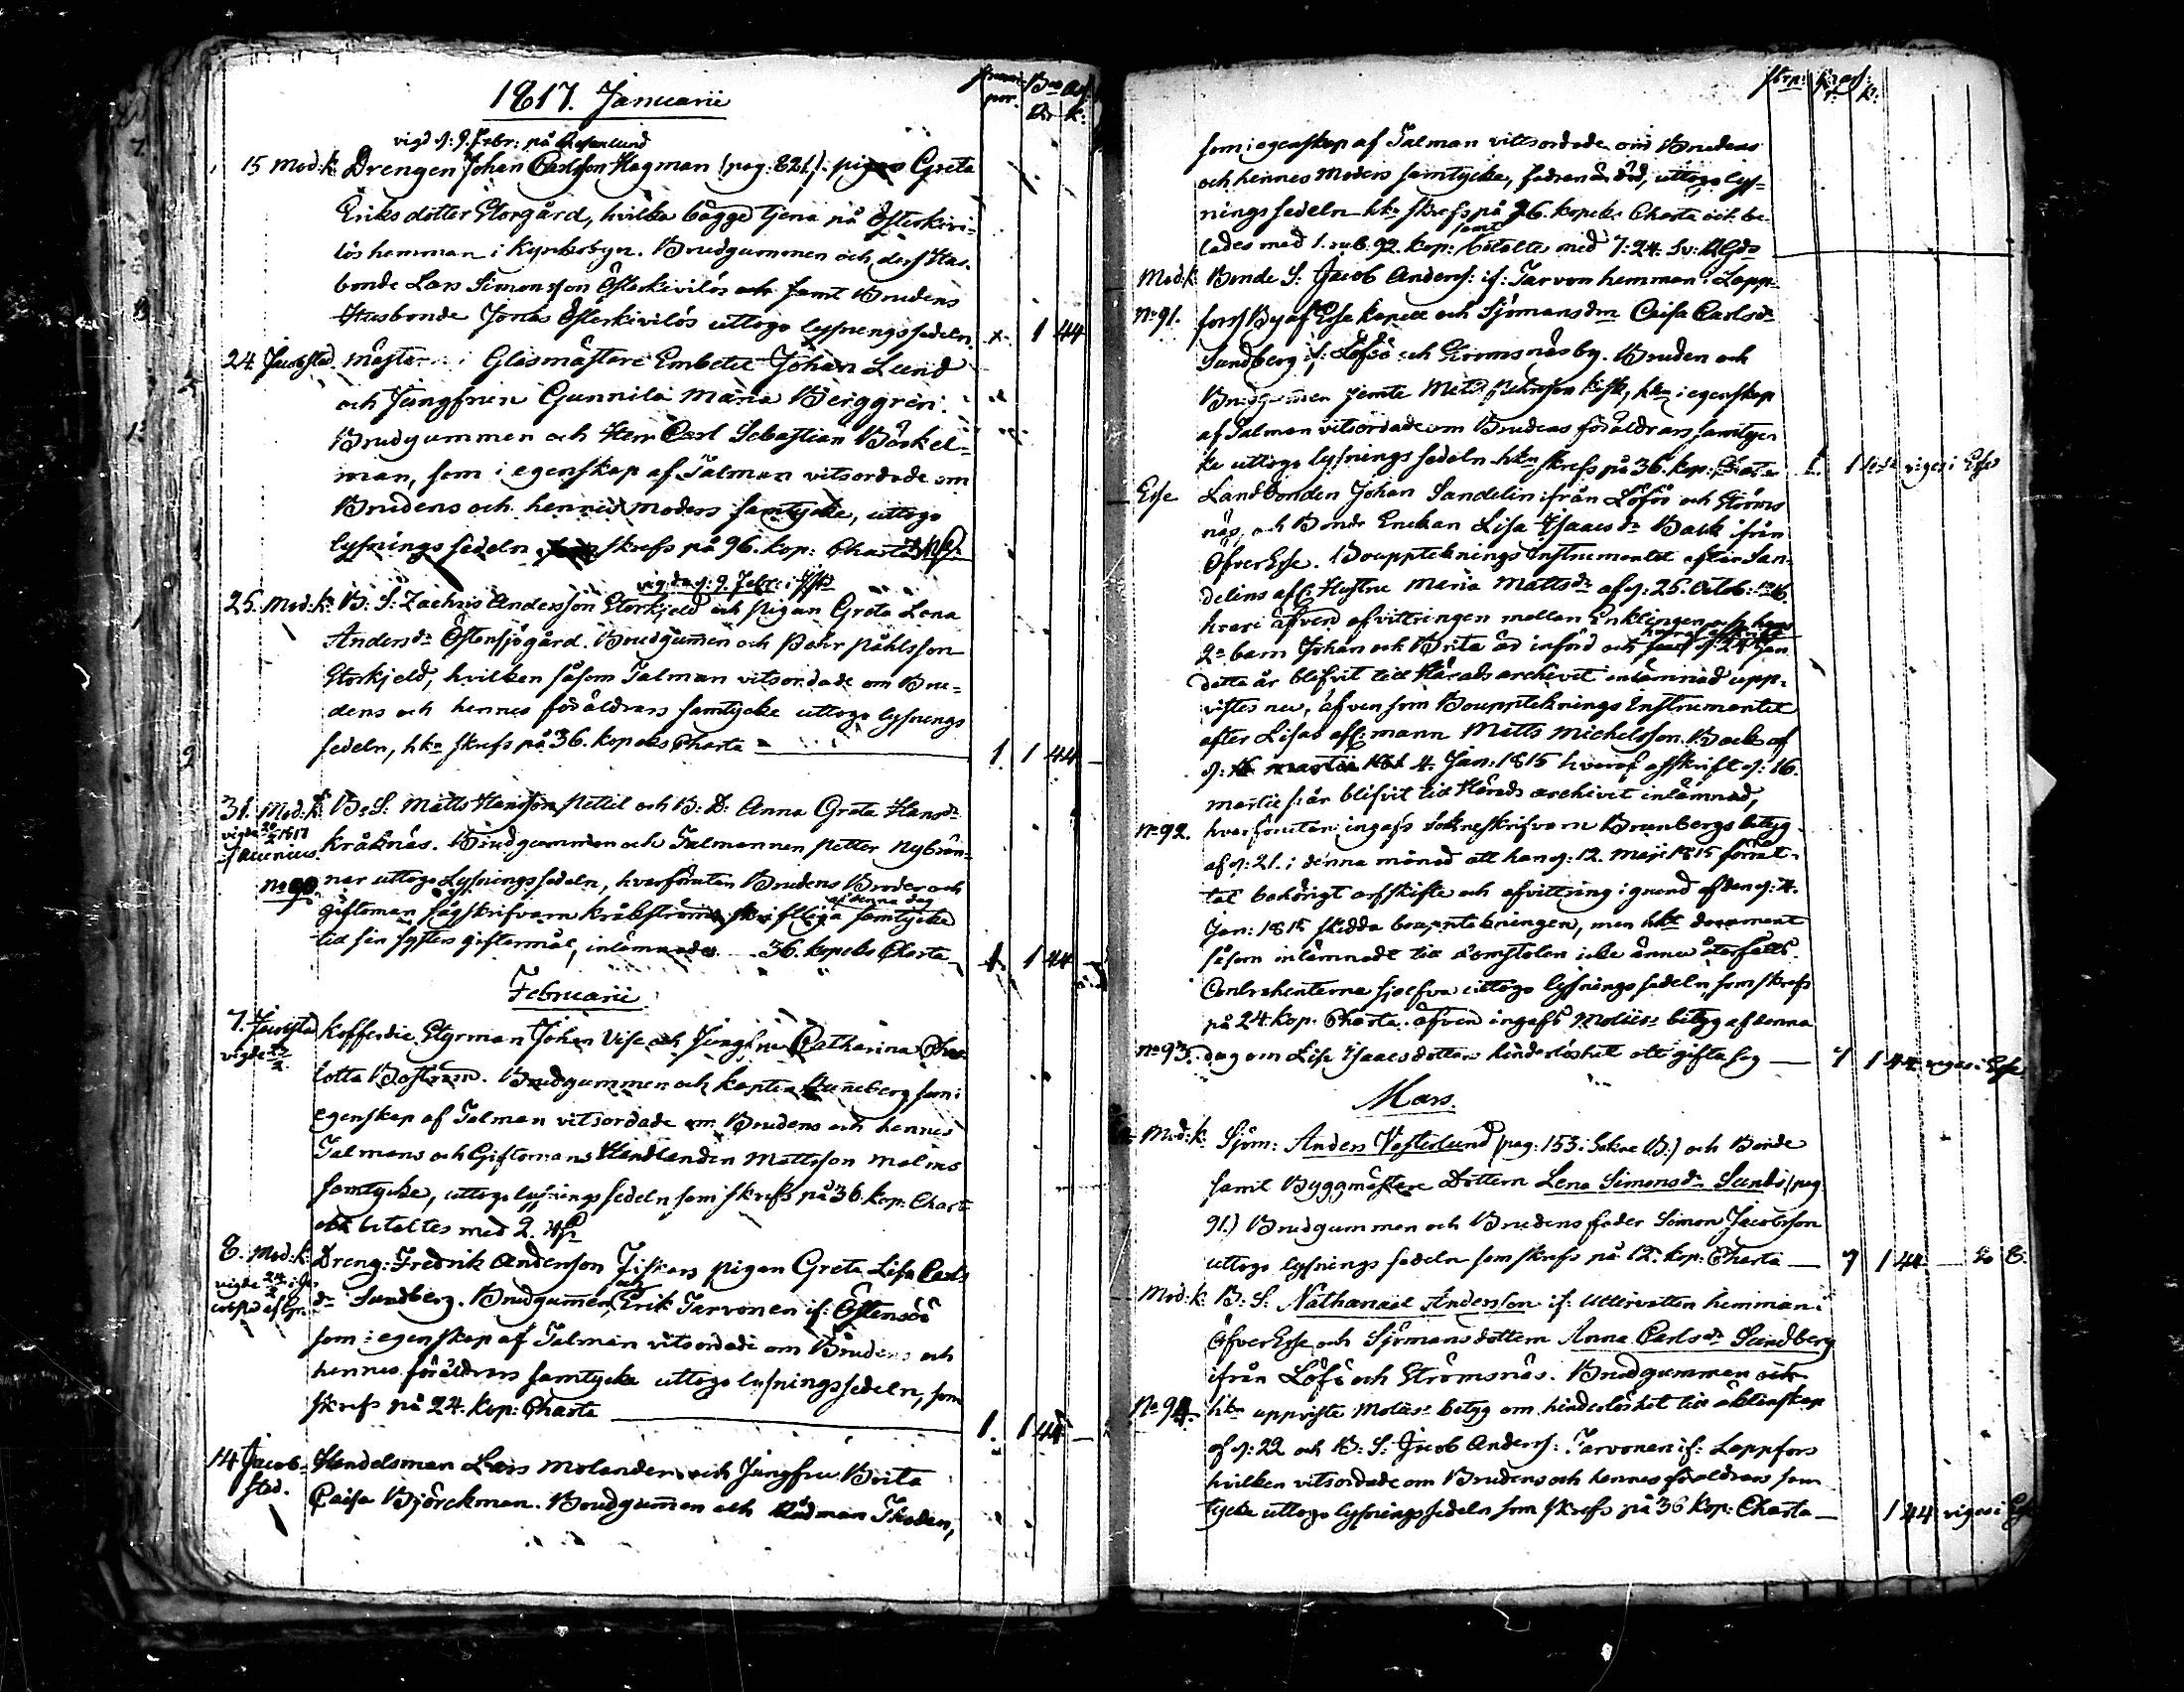 1817. Januarii
vigd d: 9. Febr: på Rosenlund
15 Mod:k. Drengen Johan Carlsson Hagman (pag: 821.) pigan Greta
Eriksdotter Storgård, hvilka bägge tjena på Österkivi-
lös hemman i Kyrkobyn. Brudgummen och dess Hus-
bonde Lars Simonsson Österkivilös och samt Brudens
Husbonde Jonas Österkivilös uttogo lysningssedeln x 1 44
24. Jacobstad. Mästar i Glasmästare Embetet Johan Lund
och Jungfrun Gunnila Maria Berggren.
Brudgummen och Herr Carl Sebastian Böckel-
man, som i egenskap af Talman vitsordade om
Brudens och hennes Moders samtycke, uttogo
lysningssedeln skrefs på 96. kop: Charta
vigda d: 9. Febr:
25. Mod:k. B: S: Zachris Andersson Storkjeld och pigan Greta Lena
Andersdr Östensjögård. Brudgummen och Påhlsson
Storkjeld, hvilken såsom Talman vitsordade om Bru-
dens och hennes föräldrars samtycke uttogo lysnings
sedeln, hkn skrefs på 36. kopeks Charta 1. 1 44
31. Mod:k. B: S: Matts Hansson Pettil och B: D: Anna Greta Hansdr
vigda 1817
Kråknäs. Brudgummen och Talmannen Petter Nybrän-
No 90. ner uttogo Lysningssedeln, hvarförutan Brudens Broder och
af denna dag
giftoman Sågskrifvarn Kråkströms skriftliga samtycke
till sin systers giftermål, inlämnades 36. kopeks Charta 1. 1 44
Februarii
7. Jacobstad Kofferdie Styrman Johan Vise och Jungfru Catharina Char
vigde
lotta Boström. Brudgummen och Kapten Runeberg som i
egenskap af Talman vitsordade om Brudens och hennes
Talmans och Giftomans Handlanden Mattsson Malms
samtycke, uttogo lysningssedeln som skrefs på 36. kop: Chart
och betaltes med 2.
8. Mod:k. Dreng: Fredrik Andersson Fiskars pigan Greta Lisa Carls
och
dr Sundberg. Brudgummen Erik Tarvonen if: Östensöö
som i egenskap af Talman vitsordade om Brudens och
hennes föräldrars samtycke uttogo lysningssedeln, som
skrefs på 24. kop: Charta 1. 1 44
14 Jacob- Handelsman Lars Molander och Jungfru Brita
stad. Caisa Björckman. Brudgummen och Rådman Thoden,
som i egenskap af Talman vittsordade om Brudens
och hennes Moders samtycke, fadren är död, uttogo lys-
ningssedeln hkn skrefs på 96. kopeks Charta och be-
samt
lades med 1. rub: 92. kop: betalte med 7:24. Sv: RGds
Mod:k Bonde S: Jacob Anders: if: Tarvon hemman i Lapp-
No 91. fors By af Esse Kapell och Sjömans dn Caisa Carlsdr
Sundberg if: Löfö och Strömsnäs by. Bruden och
Brudgummen jemte Metts Kisk, hkn i egenskap
af Talman vitsordade om Brudens föräldrars samtyc-
ke uttogo lysningssedeln hkn skrefs på 36. kop: Charta 1. 1 viges i Esse
Esse Landbonden Johan Sandelin ifrån Löfö och Ströms
näs, och Bonde Enckan Lisa Isaacsdr Back ifrån
Öfver Esse. Bouppteknings Instrumentet efter San-
delins afl: Hustru Maria Mattsdr af d: 25. Octob: 1816.
hvari äfven afvittringen mellan Enklingen och hans
2ne barn Johan och Brita är införd och d: 24 Jan
detta år blifvit till Härads archivet inlämnad upp-
vistes nu, äfven som Bouppteknings Instrumentet
after Lisas afl: mann Matts Michelsson Back af
d: 4. Jan: 1815 hvaraf afskrift d: 16.
Martii s: år blifvit till Härads archivet inlämnad,
No 92. hvarförutan ingafs Sokneskrifvarn Brunbergs betyg
af d: 21. i denna månad att han d: 12. Maji 1815 förrät-
tat behörigt arfskifte och afvittring i grund af den d: 4.
Jan: 1815 skedda bouppteckningen, men hkt document
såsom inlämnadt till domstolen icke ännu återfåtts.
Contrahenterna sjelfva uttogo lysningssedeln, som skrefs
på 24. kop. Charta. äfven ingafs betyg af denna
No 93. dag om Lisa Isaacsdotters hinderlöshet att gifta sig 1 1 44. viges i Esse
Mars.
Mod:k. Sjöm: Anders Vesterlund (pag: 153. i Sokne B:) och Bonde
samt Byggmästare Dottern Lena Simonsdr Sunds (pag:
91.) Brudgummen och Brudens fader Simon Jacobsson
uttogo lysningssedeln som skrefs på 12. kop: Charta 1 1 44
Mod:k. B: S: Nathanael Andersson if: hemman i
Öfver Esse och Sjömansdottern Anna Carlsdr Sundberg
ifrån Löfö och Strömsnäs. Brudgummen och
No 94. hkn uppviste betyg om hinderlöshet till äktenskap
af d: 22 och B: S: Jacob Anders: Tarvonen if: Lappfors
hvilken vitsordade om Brudens och hennes föräldrars sam-
tycke uttogo lysningssedeln som skrefs på 36 kop: Charta 1 44 viges i